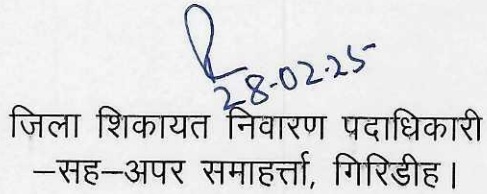 28-02-25
जिला शिकायत निवारण पदाधिकारी
–सह–अपर समाहर्त्ता, गिरिडीह।